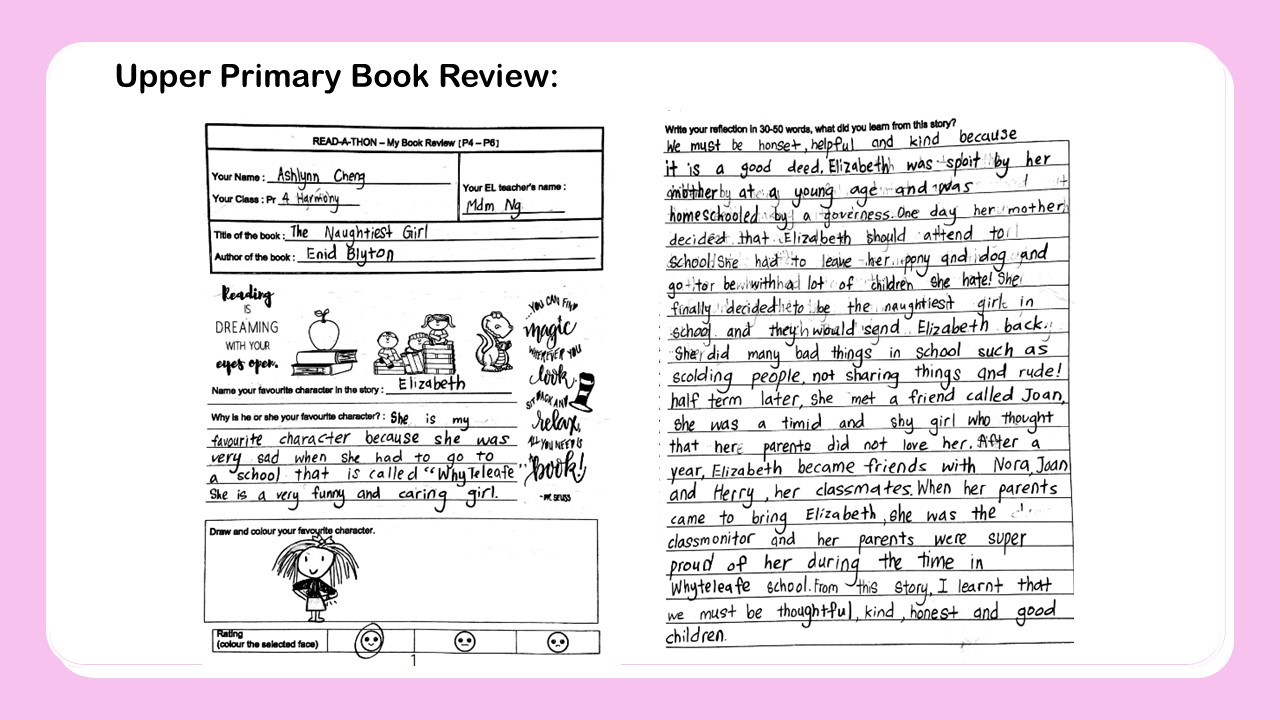 Upper Primary Book Review:
READ-A-THON – My Book Review [P4 – P6]
Your Name : Ashlynn Cheng
Your Class : Pr 4 Harmony
Your EL teacher's name :
Mdm Ng
Title of the book : The Naughtiest Girl
Author of the book : Enid Blyton
Reading
IS
DREAMING
WITH YOUR
eyes open.
YOU CAN FIND
magic
WHEREVER YOU
look
SIT BACK AND
relax,
ALL YOU NEED IS
book!
- DR. SEUSS
Name your favourite character in the story : Elizabeth
Why is he or she your favourite character? : She is my
favourite character because she was
very sad when she had to go to
a school that is called "WhyTeleafe".
She is a very funny and caring girl.
Draw and colour your favourite character.
Rating
(colour the selected face)
1
Write your reflection in 30-50 words, what did you learn from this story?
We must be honset, helpful and kind because
it is a good deed. Elizabeth was spoit by her
mother at a young age and was
homeschooled by a governess. One day her mother
decided that Elizabeth should attend to
school. She had to leave her pony and dog and
go tor be with had lot of children she hate! She
finally decided to be the naughtiest girl in
school and they would send Elizabeth back.
She did many bad things in school such as
scolding people, not sharing things and rude!
half term later, she met a friend called Joan,
she was a timid and shy girl who thought
that her parents did not love her. After a
year, Elizabeth became friends with Nora, Joan
and Herry, her classmates. When her parents
came to bring Elizabeth, she was the
classmonitor and her parents were super
proud of her during the time in
Whyteleafe school. From this story, I learnt that
we must be thoughtful, kind, honest and good
children.